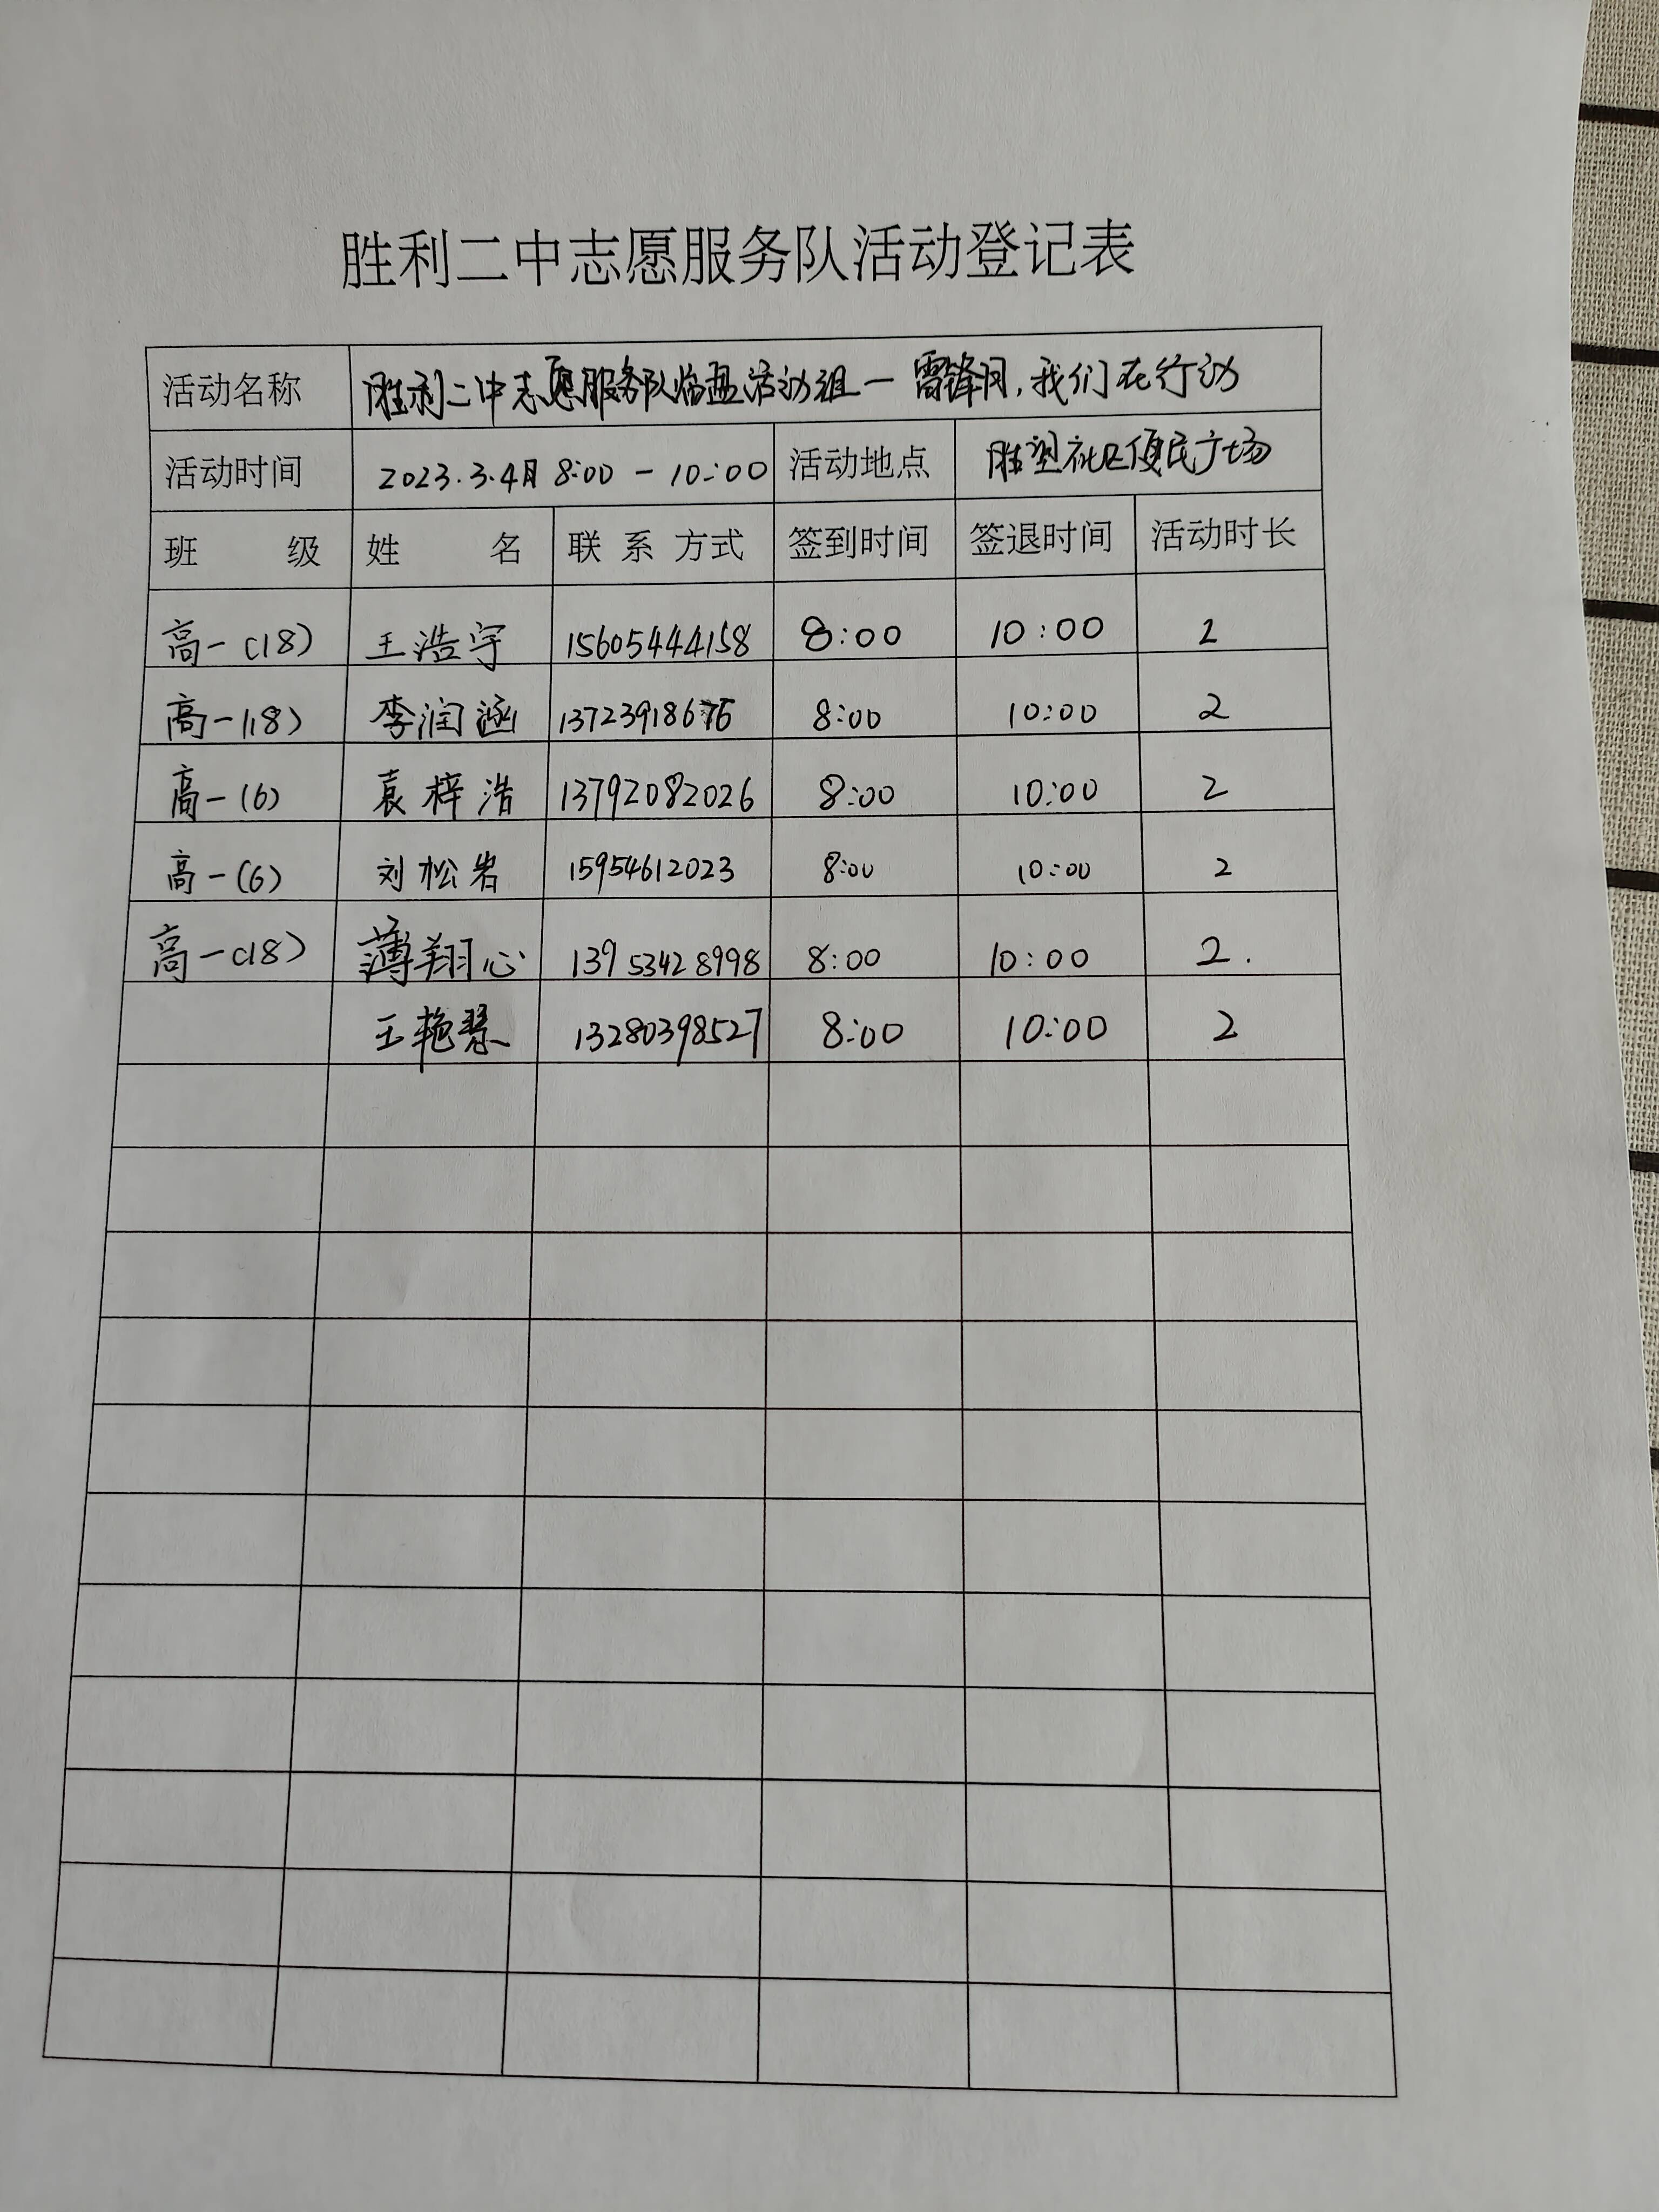 胜利二中志愿服务队活动登记表
活动名称 胜利二中志愿服务队临盘活动组一雷锋月,我们在行动
活动时间 2023.3.4月 8:00 - 10:00 活动地点 胜望社区便民广场
班 级 姓 名 联 系 方式 签到时间 签退时间 活动时长
高一(18) 王浩宇 15605444158 8:00 10:00 2
高一(18) 李润涵 8:00 10:00 2
高一(6) 袁梓浩 13792082026 8:00 10:00 2
高一(6) 刘松岩 15954612023 8:00 10:00 2
高一(18) 薄翔心 13953428998 8:00 10:00 2.
王艳慧 13280398527 8:00 10:00 2